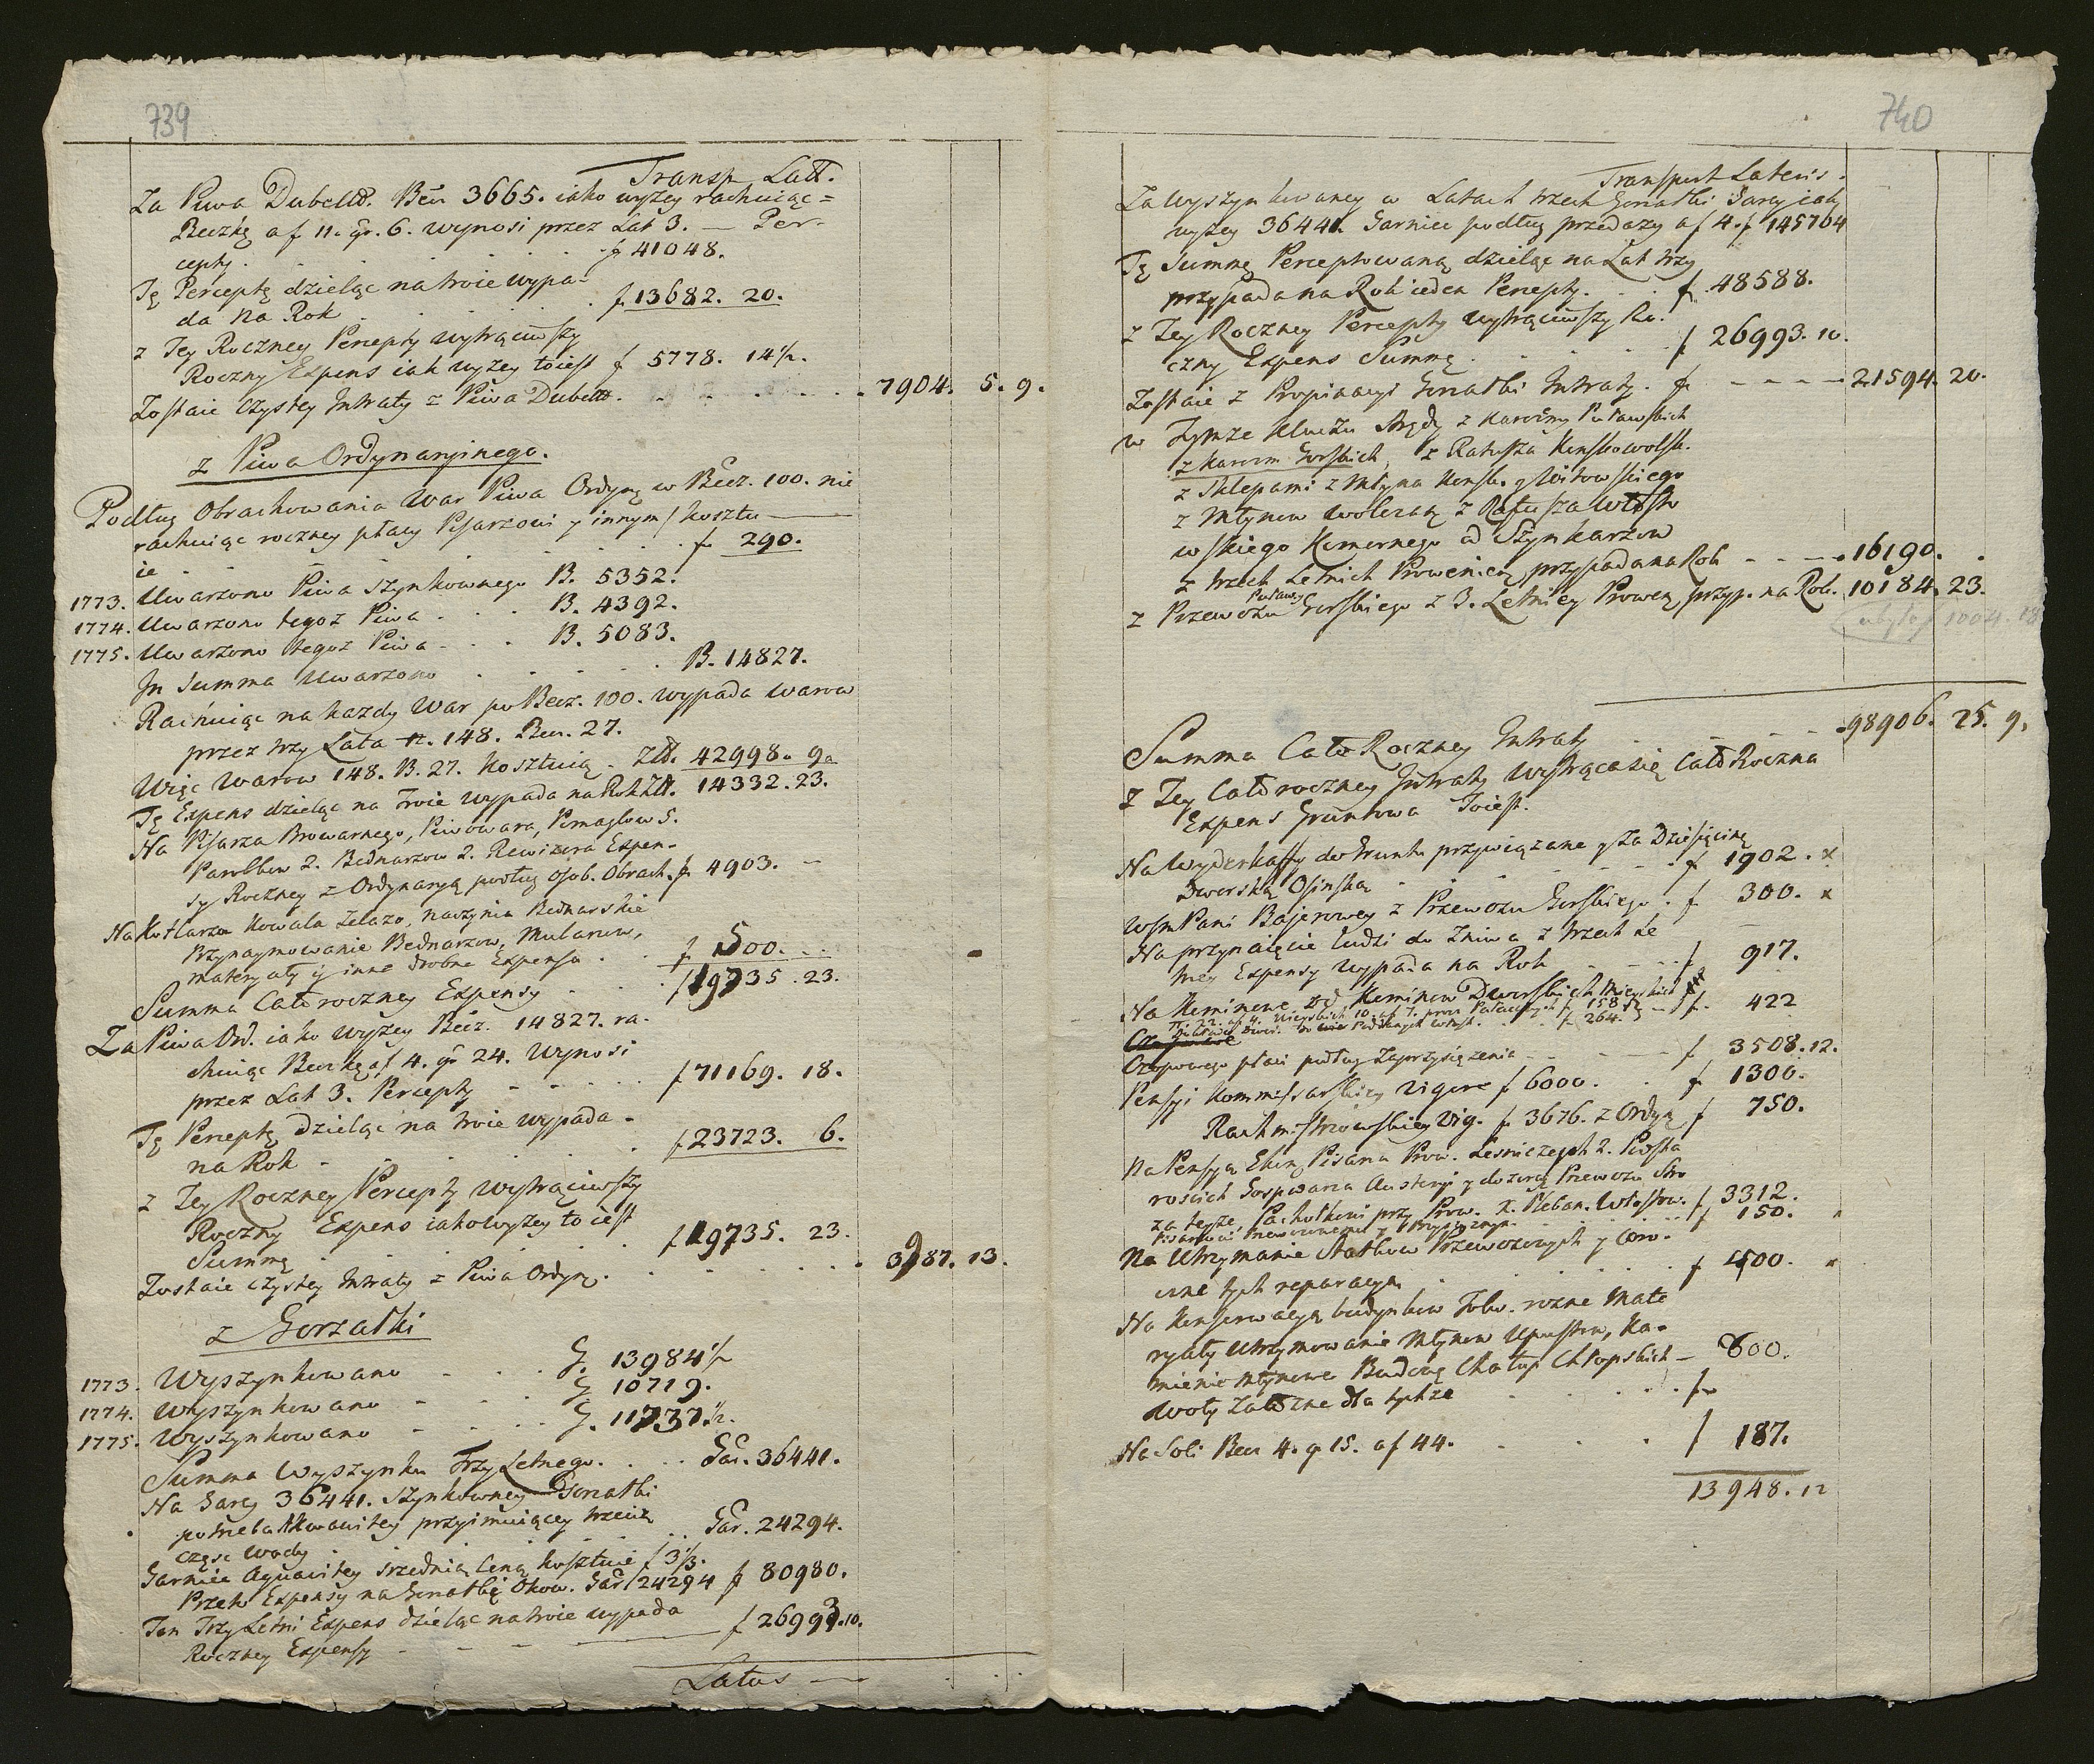 739
Transp Latt.
Za Piwa Dubelt. Becz 3665. iako wyżey rachuiąc =
Beczkę a f 11. gr. 6. wynosi przez Lat 3. — Per-
cepty . . . f 41048.
Tę Perceptę dzieląc na troie wypa-
da na Rok . . . f 13682. 20.
z Tey Roczney Percepty wytrąciwszy
Roczny Expens iak wyżey toiest f 5778. 14½.
Zostaie czystey Intraty z Piwa Dubelt. . . . 7904. 5. 9.
z Piwa Ordynaryinego.
Podług Obrachowania War Piwa Ordyn: w Becz. 100. nie
rachuiąc roczney płacy Pisarzowi y innym / kosztu
ie . . . f 290.
1773. Uwarzono Piwa szynkownego B. 5352.
1774. Uwarzono tegoż Piwa . . . B. 4392.
1775. Uwarzono tegoż Piwa . . . B. 5083.
In Summa Uwarzono . . . B. 14827.
Rachuiąc na każdy War po Becz. 100. wypada warow
przez trzy Lata n. 148. Becz. 27.
Więc warow 148. B. 27. Kosztuią . Złt. 42998. 9.
Tę Expens dzieląc na Troie wypada na Rok Złt. 14332. 23.
Na Pisarza Browarnego, Piwowara, Pomagłow 5.
Parobkow 2. Bednarzow 2. Rewizora Expen-
sy Roczney z Ordynaryą podług osob. Obrach. f 4903. —
Na Kotlarza Kowala Zelazo, naczynia Bednarskie
Przynaymowanie Bednarzow, Mularzow,
materyały y inne drobne Expensa . . f 500. . .
Summa Całoroczney Expensy . . . f 19735. 23.
Za Piwa Ord. iako wyżey Becz. 14827. ra-
chuiąc Beczkę a f 4. gr 24. Wynosi
przez Lat 3. Percepty . . . f 71169. 18.
Tę Perceptę dzieląc na troie wypada -
na Rok . . . f 23723. 6.
z Tey Roczney Percepty wytrąciwszy
Roczny Expens iako wyżey to iest
Summę . . . f 19735. 23.
Zostaie czystey Intraty z Piwa Ordyn: . . . 3987. 13.
z Gorzałki
1773. Wyszynkowano . . . G. 13984½
1774. Wyszynkowano . . . G. 10719.
1775. Wyszynkowano . . . G. 11737½.
Summa Wyszynku Trzy Letnego. . . . Gar. 36441.
Na Garcy 36441. szynkowney Gorzałki
potrzeba Akwawitey przyimuiącey trzecią
częsc wody . . . Gar. 24294.
Garniec Aquawitey srzednią Ceną kosztuie f 3⅓.
Przeto Expensy na Gorzałkę Okow. Gar 24294 f 80980.
Ten Trzy Letni Expens dzieląc na troie wypada
Roczney Expensy — — — f 26993. 10.
Latus —
740
Transport Lateris .
Za wyszynkowaney w Latach trzech Gorzałki Garcy iak
wyżey 36441. Garniec podług przedaży a f 4. f 145764
Tę Summę Perceptowaną dzieląc na Lat trzy
przypada na Rok ieden Percepty. . . f 48588.
z Tey Roczney Percepty wytrąciwszy Ro-
czny Expens Summę . . . f 26993. 10.
Zostaie z Propinacyi Gorzałki Intraty . f - - - - 21594. 20.
w Tymze Kluczu Arędy z Karczmy Puławskich
z Karczm Gorskich, z Ratusza Konskowolsk.
z Sklepami z Młyna Konsk. y Witowskiego
z Młynow Woleray z Ratusza Włosto
wskiego Komornego od Szynkarzow
z trzech Letnich Prowenieney przypada na Rok - - - 16190. .
z Przewozu Puław: Gorskiego z 3. Letniey Prowen: przyp. na Rok. 10184. 23.
ubyło f 1004. 18
Summa Cało Roczney Intraty . . . 98906. 25. 9.
z Tey Całoroczney Intraty wytrąca się Cało Roczna
Expens Gruntowa Toiest.
Na Wyderkaffy do Gruntu przywiązane y za Dziesięcinę
Dworską Osinską . . . f 1902. x
WJmPani Bajerowey z Przewozu Gorskiego . f 300. x
Na przynaięcie ludzi do Zniwa z trzech Le
tniey Expensy wypada na Rok . . . f 917.
Na Kominowe od Kominow Dworskich Mieyskich
f 422
Czopowego płaci podług Zaprzysiężenia . . . f 3508. 12.
Pensyi Kommissarskiey Vigore f 6000. . f 1300.
Rachmistrzowskiey Vig. f 3676. z Ordyn: f 750.
Na Pensyą Ekon: Pisarza Prow. Lesniczych 2. Podsta
rościch Gospodarza Austeryi y dozorcę Przewozu Stro
za tegze, Pachołkowi przy Prow. X. Pleban. Włostow. f 3312.
f 150. "
Na Utrzymanie Statkow Przewozowych y coro-
czne tych reparacye . . . f 400. "
Na Konserwacyą budynkow Folw. rozne Mate
ryały utrzymowanie Młynow Upustow, Ka-
mienie Młynowe Budowę Chałup Chłopskich —
Woły Załozne dla tychze . . . f 800.
Na Soli Becz 4. g 15. a f 44. . . . f 187.
13948. 12